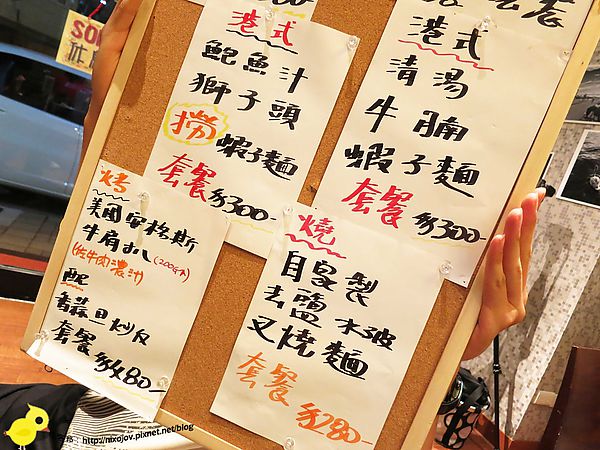 港式
鮑魚汁
獅子頭
撈
蝦子麵
套餐 $300-
港式
清湯
牛腩
蝦子麵
套餐 $300-
烤
美國安格斯
牛肩扒 (200g↑)
(佐牛肉濃汁)
配
香蒜旦炒反
套餐 $480-
燒
自家製
去鹽水波
叉燒麵
套餐 $280-
http://nixojov.pixnet.net/blog